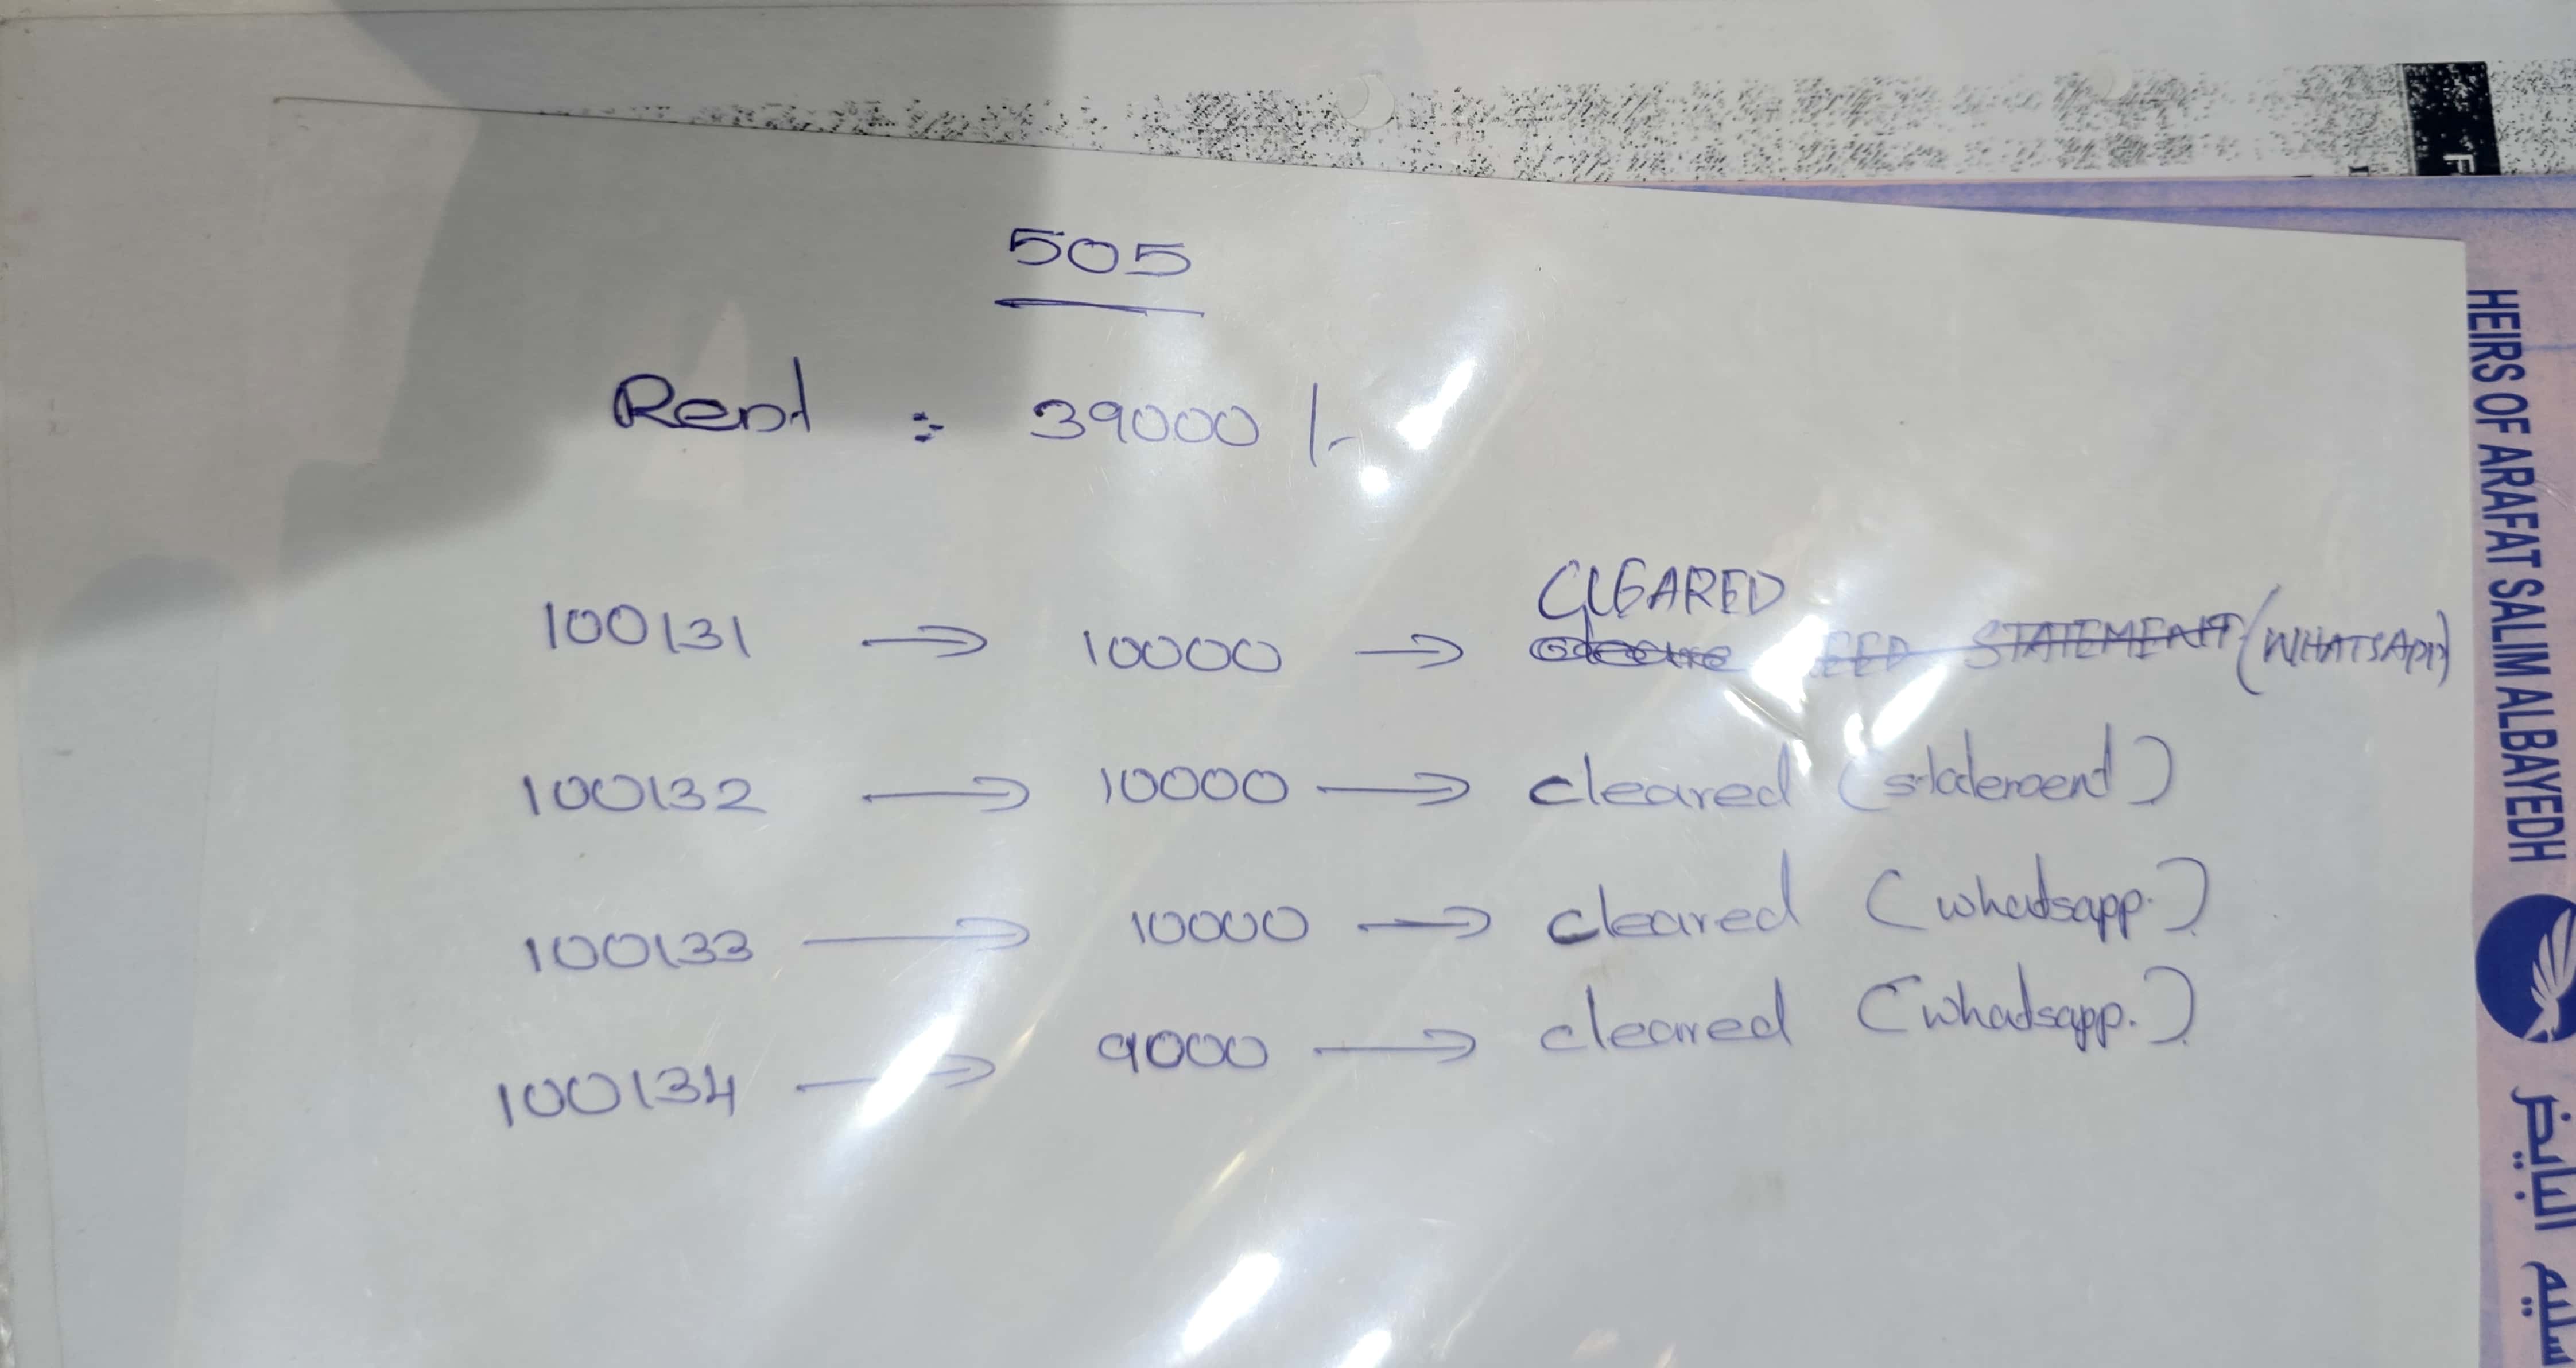 505
Rent : 39000/-
CLEARED
100131 → 10000 → STATEMENT (WHATSAPP)
100132 → 10000 → cleared (statement)
100133 → 10000 → cleared (whatsapp.)
100134 → 9000 → cleared (whatsapp.)
HEIRS OF ARAFAT SALIM ALBAYEDH
سليم البايض
F